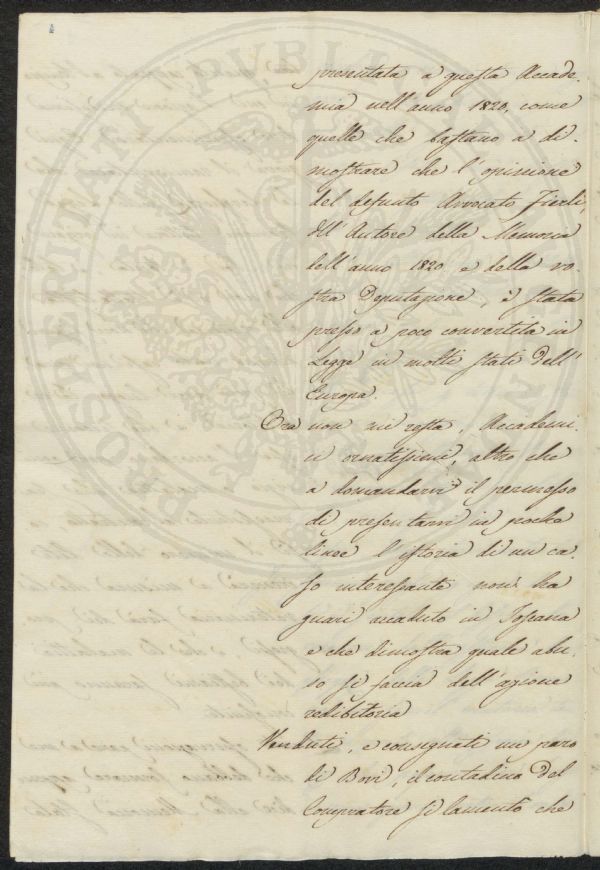 presentata a questa Accade-
mia nell'anno 1820, come
quelle che bastano a di-
mostrare che l'opinione
del defunto Avvocato Fierli,
dell'Autore della Memoria
dell'anno 1820 e della vo-
stra Deputazione, è stata
presso a poco convertita in
Legge in molti stati dell'
Europa.
Ora non mi resta, Accademi-
ci ornatissimi, altro che
a domandarvi il permesso
di presentarvi in poche
linee l'istoria di un ca-
so interessante non ha
guari accaduto in Toscana
e che dimostra quale abu-
so si faccia dell'azione
redibitoria
Venduti, e consegnati un paro
di Bovi, il contadino del
Compratore si lamentò che